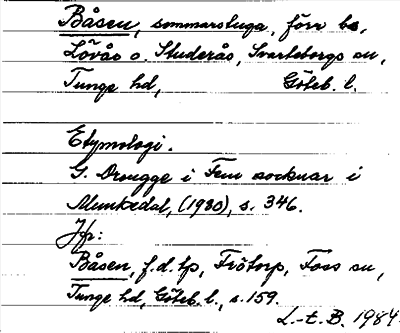 Båsen, sommarstuga, förr be,
Lövås o. Studerås, Svarteborgs sn,
Tunge hd, Göteb. l.
Etymologi.
G. Drougge i Fem socknar i
Munkedal, (1980), s. 346.
Jfr:
Båsen, f.d. tp, Frötorp, Foss sn,
Tunge hd, Göteb. l., s. 159.
L-t. B. 1984